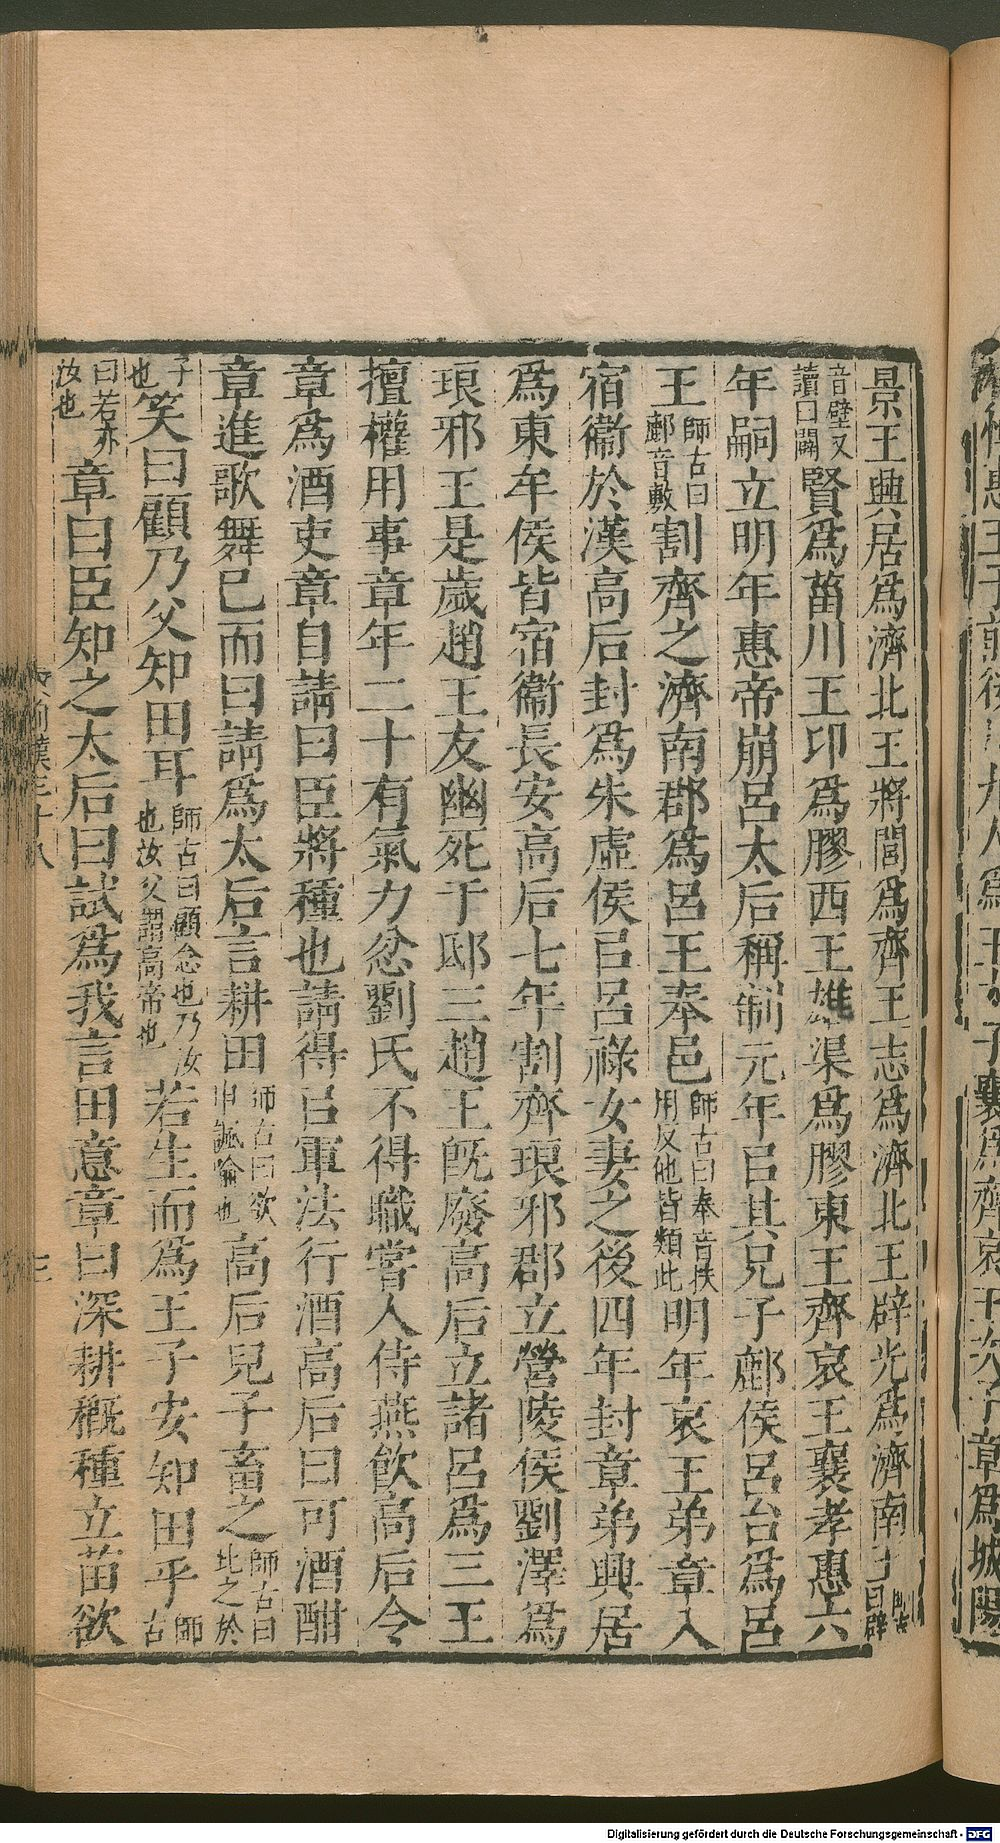 景王興居爲濟北王將閭爲齊王志爲濟北王辟光爲濟南王師古曰辟
音壁又讀曰闢賢爲菑川王卬爲膠西王雄渠爲膠東王齊哀王襄孝惠六
年嗣立明年惠帝崩呂太后稱制元年㠯其兄子鄜侯呂台爲呂
王師古曰鄜音敷割齊之濟南郡爲呂王奉邑師古曰奉音扶用反他皆類此明年哀王弟章入
宿衞於漢高后封爲朱虛侯㠯呂祿女妻之後四年封章弟興居
爲東牟侯皆宿衞長安高后七年割齊琅邪郡立營陵侯劉澤爲
琅邪王是歲趙王友幽死于邸三趙王旣廢高后立諸呂爲三王
擅權用事章年二十有氣力忿劉氏不得職嘗入侍燕飲高后令
章爲酒吏章自請曰臣將種也請得㠯軍法行酒高后曰可酒酣
章進歌舞已而曰請爲太后言耕田師古曰欲申諷喻也高后兒子畜之師古曰比之於
子也笑曰顧乃父知田耳師古曰顧念也乃汝也汝父謂高帝也若生而爲王子安知田乎師古
曰若亦汝也章曰臣知之太后曰試爲我言田意章曰深耕穊種立苗欲
前漢三十八
三
子襄爲齊哀王次子章爲城陽
Digitalisierung gefördert durch die Deutsche Forschungsgemeinschaft - DFG